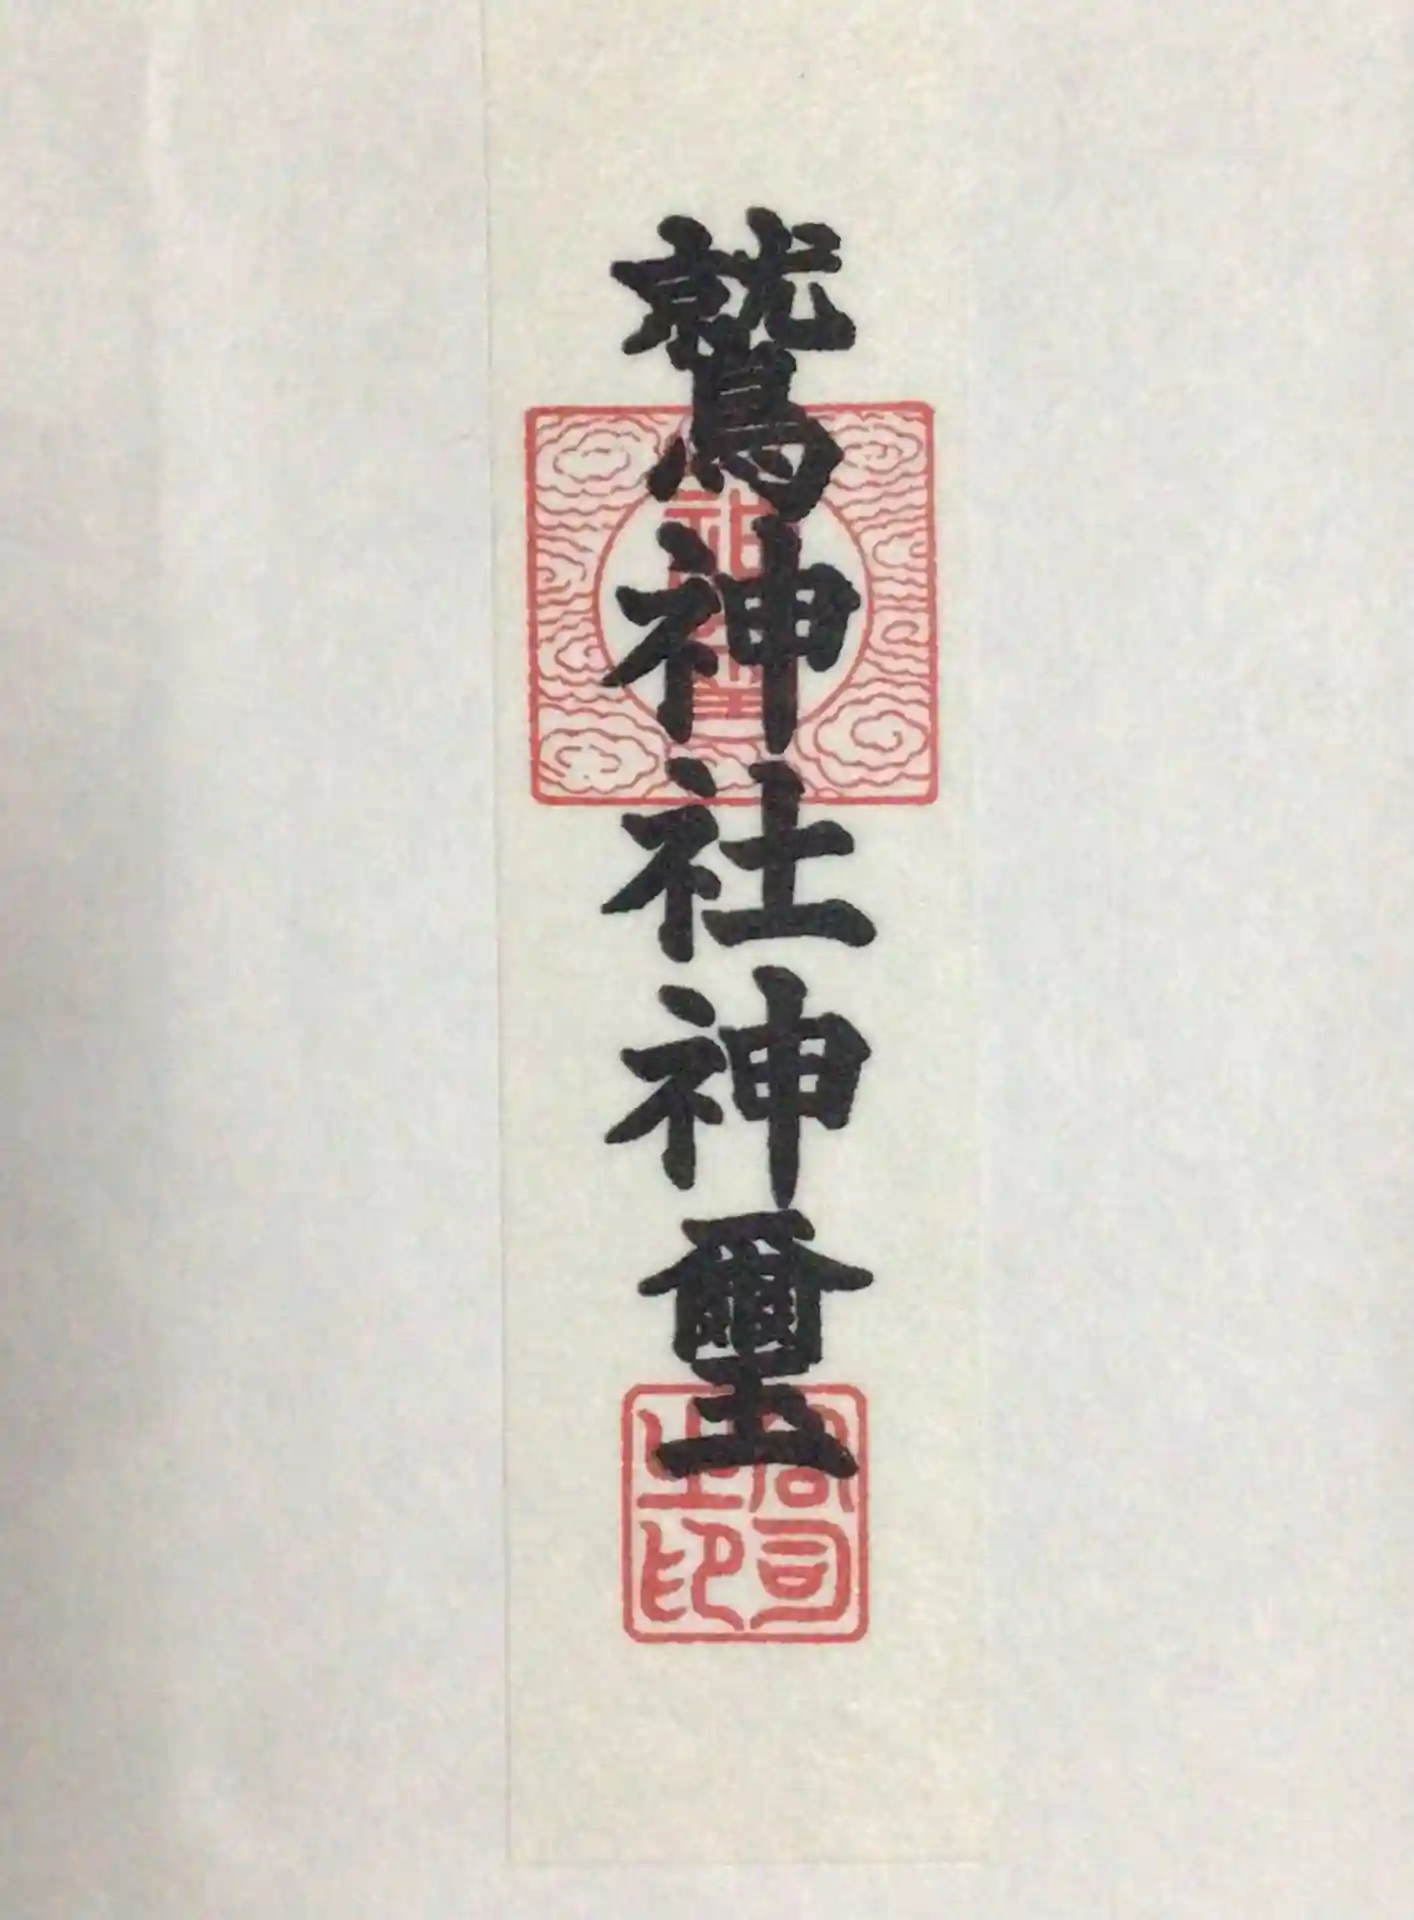 鷲神社神璽
神璽
宮司
之印